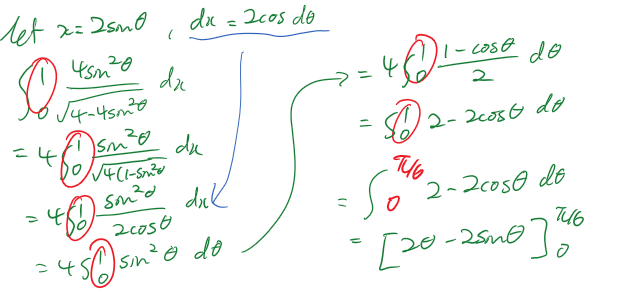 let x = 2sinθ , dx = 2cos dθ
∫₀¹ 4sin²θ / √(4-4sin²θ) dx
= 4 ∫₀¹ sin²θ / √(4(1-sin²θ) dx
= 4 ∫₀¹ sin²θ / 2cosθ dx
= 4 ∫₀¹ sin²θ dθ
= 4 ∫₀¹ (1-cosθ) / 2 dθ
= ∫₀¹ 2-2cosθ dθ
= ∫₀^(π/6) 2-2cosθ dθ
= [2θ-2sinθ]₀^(π/6)